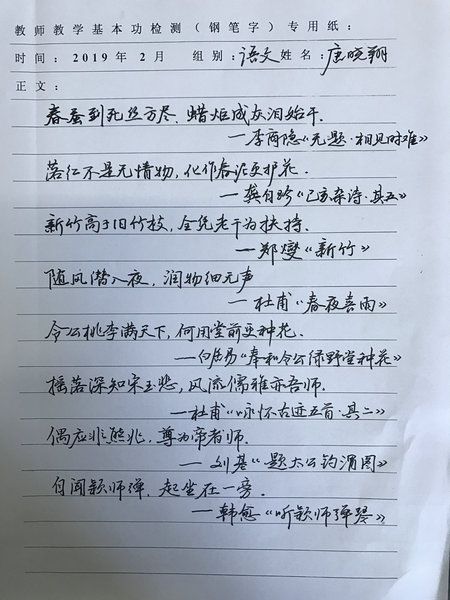 教师教学基本功检测（钢笔字）专用纸：
时间：2019年2月 组别：语文 姓名：唐晓翔
正文：
春蚕到死丝方尽，蜡炬成灰泪始干．
—李商隐《无题·相见时难》
落红不是无情物，化作春泥更护花．
—龚自珍《己亥杂诗·其五》
新竹高于旧竹枝，全凭老干为扶持．
—郑燮《新竹》
随风潜入夜，润物细无声
—杜甫《春夜喜雨》
令公桃李满天下，何用堂前更种花．
—白居易《奉和令公绿野堂种花》
摇落深知宋玉悲，风流儒雅亦吾师．
—杜甫《咏怀古迹五首·其二》
偶应非熊兆，尊为帝者师．
—刘基《题太公钓渭图》
自闻颖师弹，起坐在一旁．
—韩愈《听颖师弹琴》